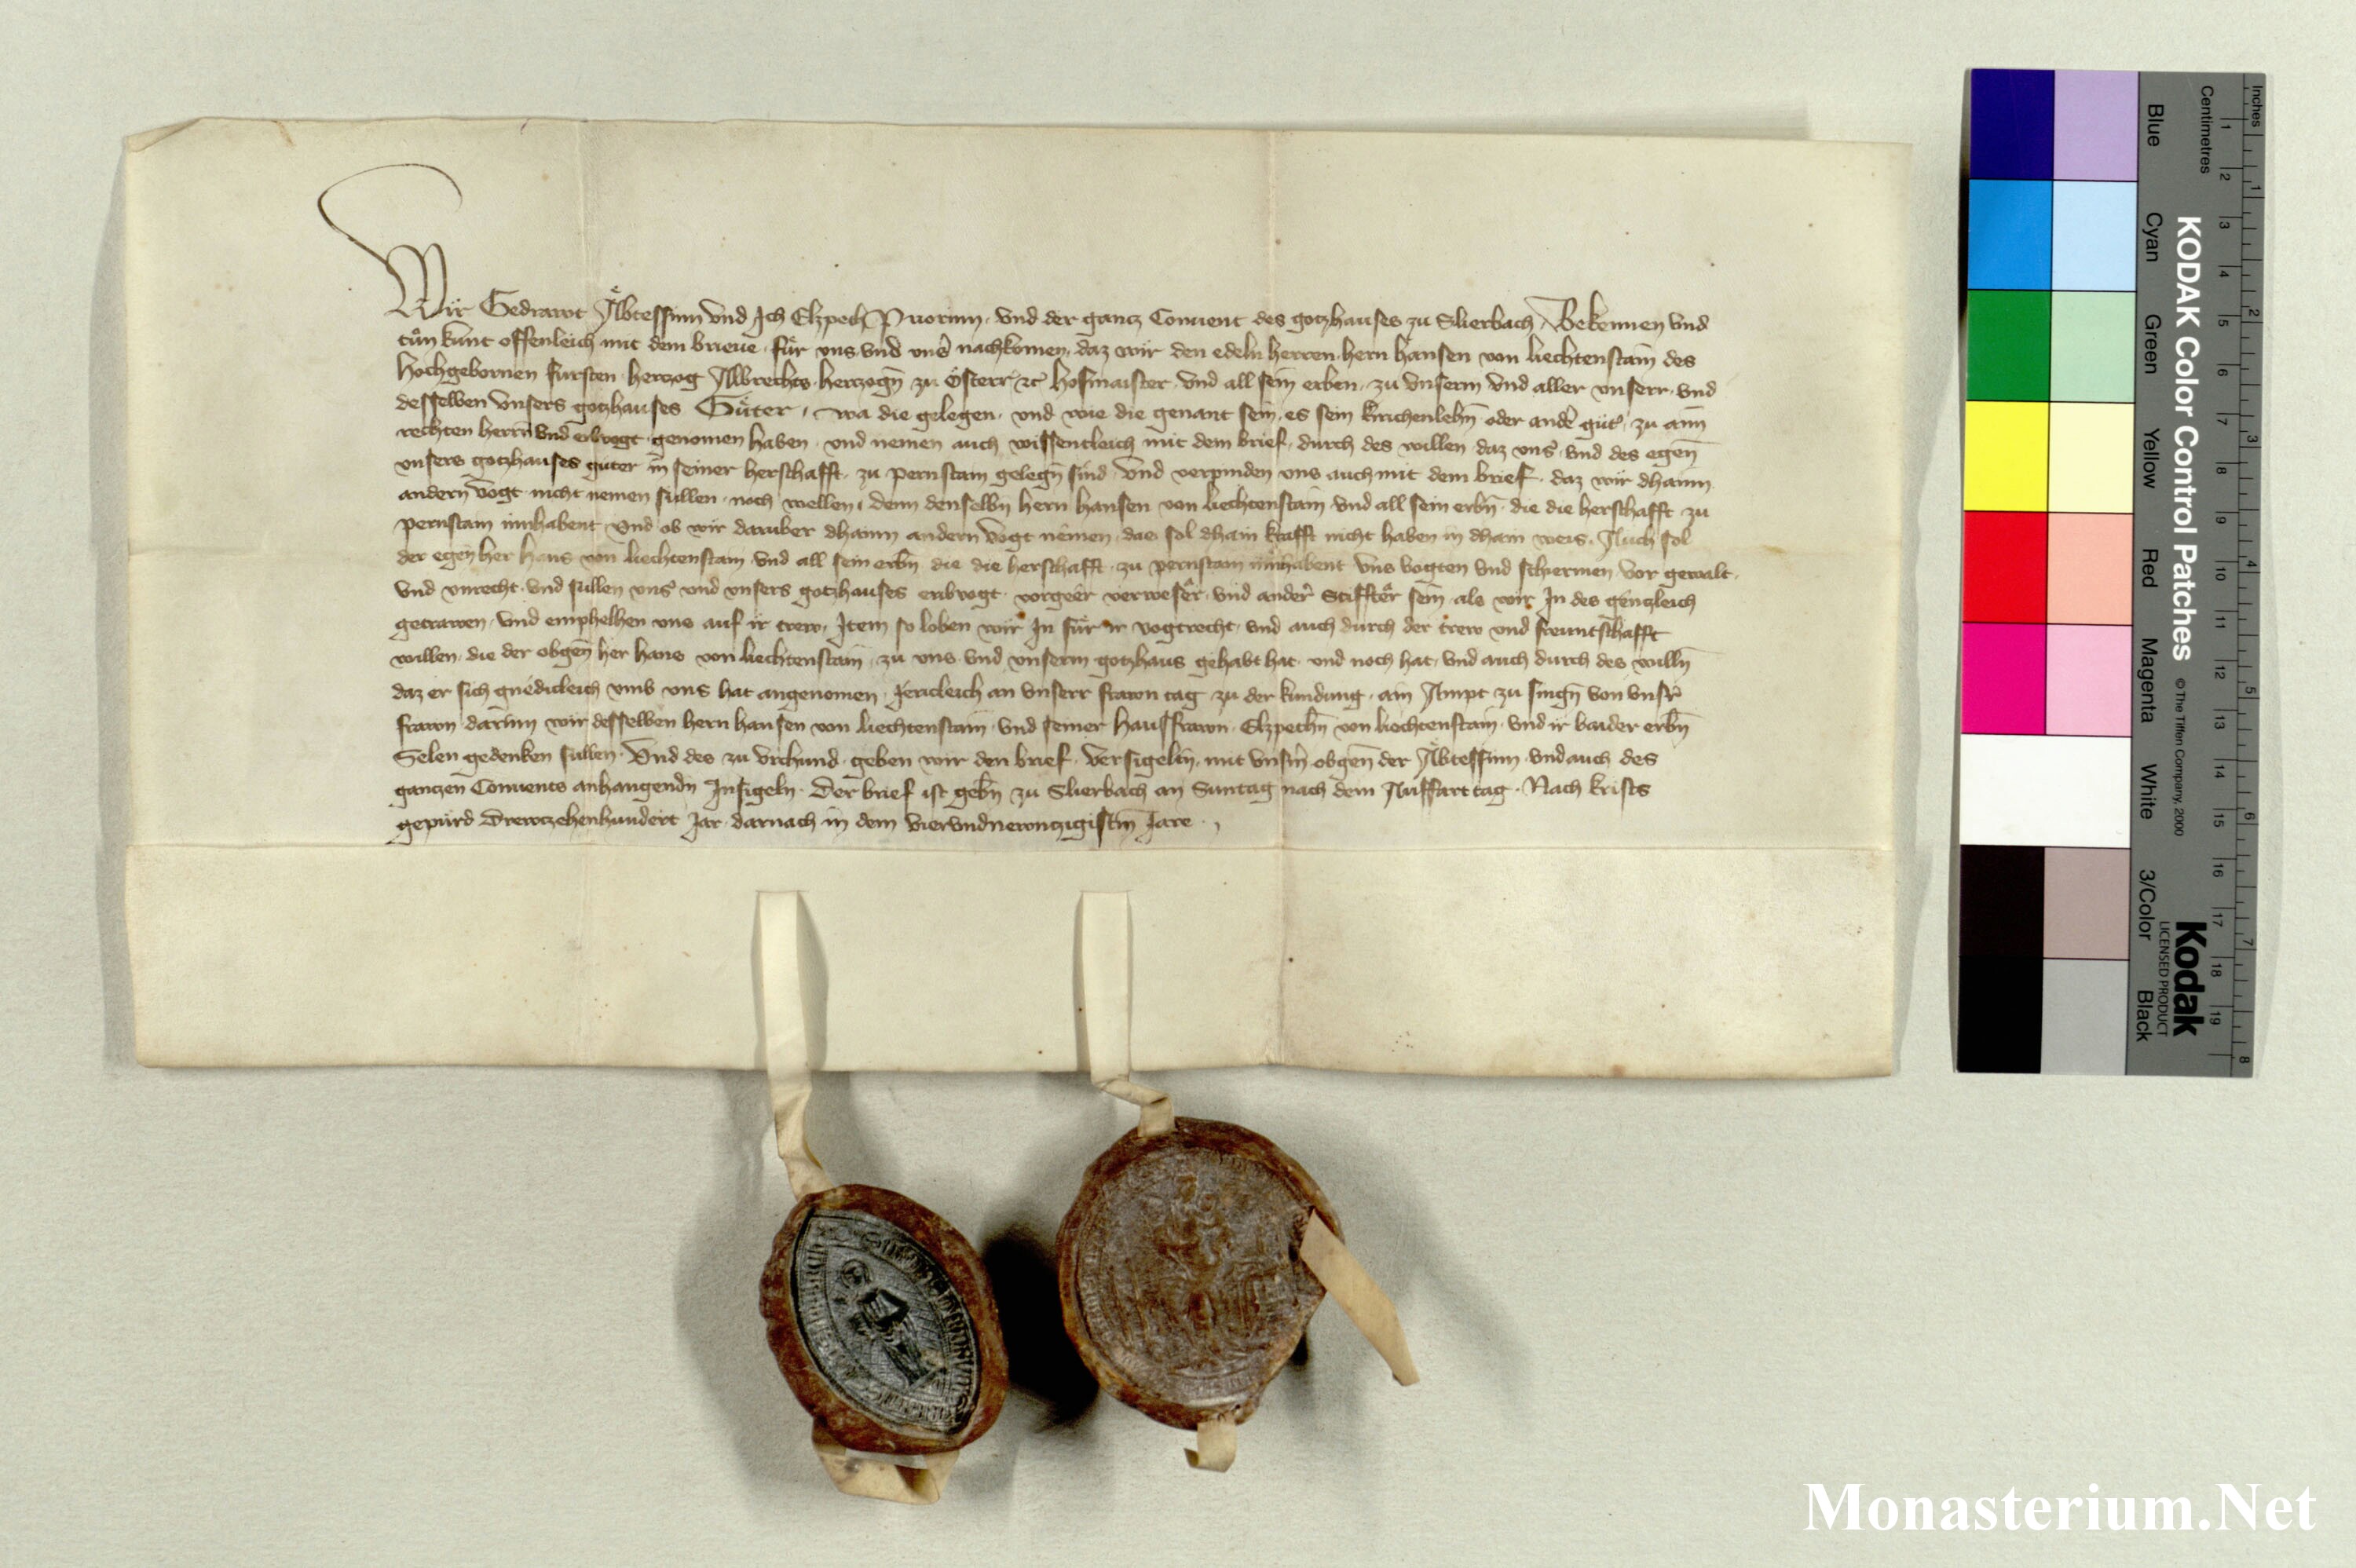 Wir Gedrawt Äbtessinn vnd Ich Elzpeth Priorinn, vnd der gancz Conuent des gotzhauses zu Slierbach, Bekennen vnd
tůn kunt offenleich mit dem brieue, für vns vnd vnsẻ nachkomen, daz wir den edeln herren, hern hansen von liechtenstain des
hochgebornen fürsten herczog Albrechts herczogñ zu Österr̃ ꝛc̃ hofmaister vnd all sein erben, zu vnserm vnd aller vnserr vnd
desselben vnsers gotzhauses Güter, wa die gelegen, vnd wie die genant sein, es sein kirchenlehñ oder andẻ gůt, zu aim
rechten herrñ vnd erbvogt genomen haben, vnd nemen auch wissentleich mit dem brief, durch des willen daz vnsẻ vnd des egeñ
vnsers gotzhauses güter in seiner herschafft, zu pernstain gelegñ sind, vnd verpinden vns auch mit dem brief, daz wir dhainn
andern vogt nicht nemen sullen, noch wellen, denn denselbñ hern hansen von liechtenstain vnd all sein erbñ, die die herschafft zu
pernstain innhabent, vnd ob wir daruber dhainn andern vogt nemen, daz sol dhain krafft nicht haben in dhain weis, Auch sol
der egeñ her hans von liechtenstain vnd all sein erbñ, die die herschafft, zu pernstain innhabent vns vogten vnd schermen vor gewalt,
vnd vnrecht, vnd sullen vnsẻ vnd vnsers gotzhauses erbvogt, vorgeer verweser, vnd anderr̃ Stiffter sein, als wir In des genczleich
getrawen, vnd emphelhen vns auf ir trew, Item so loben wir In für ir vogtrecht, vnd auch durch der trew vnd freuntschafft
willen, die der obgeñ her hans von liechtenstain, zu vns vnd vnserm gotzhaus gehabt hat, vnd noch hat, vnd auch durch des willñ
daz er sich gnedicleich vmb vns hat angenomen, Jericleich an vnserr frawn tag zu der kundung, ain Ampt zu singñ von vnsr̃
frawn, darinn wir desselben hern hansen von liechtenstain vnd seiner hausfrawn, Elzpethñ von liechtenstain, vnd ir baider erbñ
Selen gedenken sullen, Vnd des zu vrchund, geben wir den brief, versigeltñ, mit vnsrñ obgeñ der Äbtessinn vnd auch des
ganczen Conuents anhangendñ Insigeln, Der brief ist gebñ zu Slierbach an Suntag nach dem Auffarttag, Nach krists
gepürd Drewczehenhundert Jar, darnach in dem viervndnewnczigistñ Jare,
Inches
Centimetres
1 2 3 4 5 6 7 8
1 2 3 4 5 6 7 8 9 10 11 12 13 14 15 16 17 18 19
KODAK Color Control Patches © The Tiffen Company, 2000
Kodak
LICENSED PRODUCT
Blue Cyan Green Yellow Red Magenta White 3/Color Black
Monasterium.Net